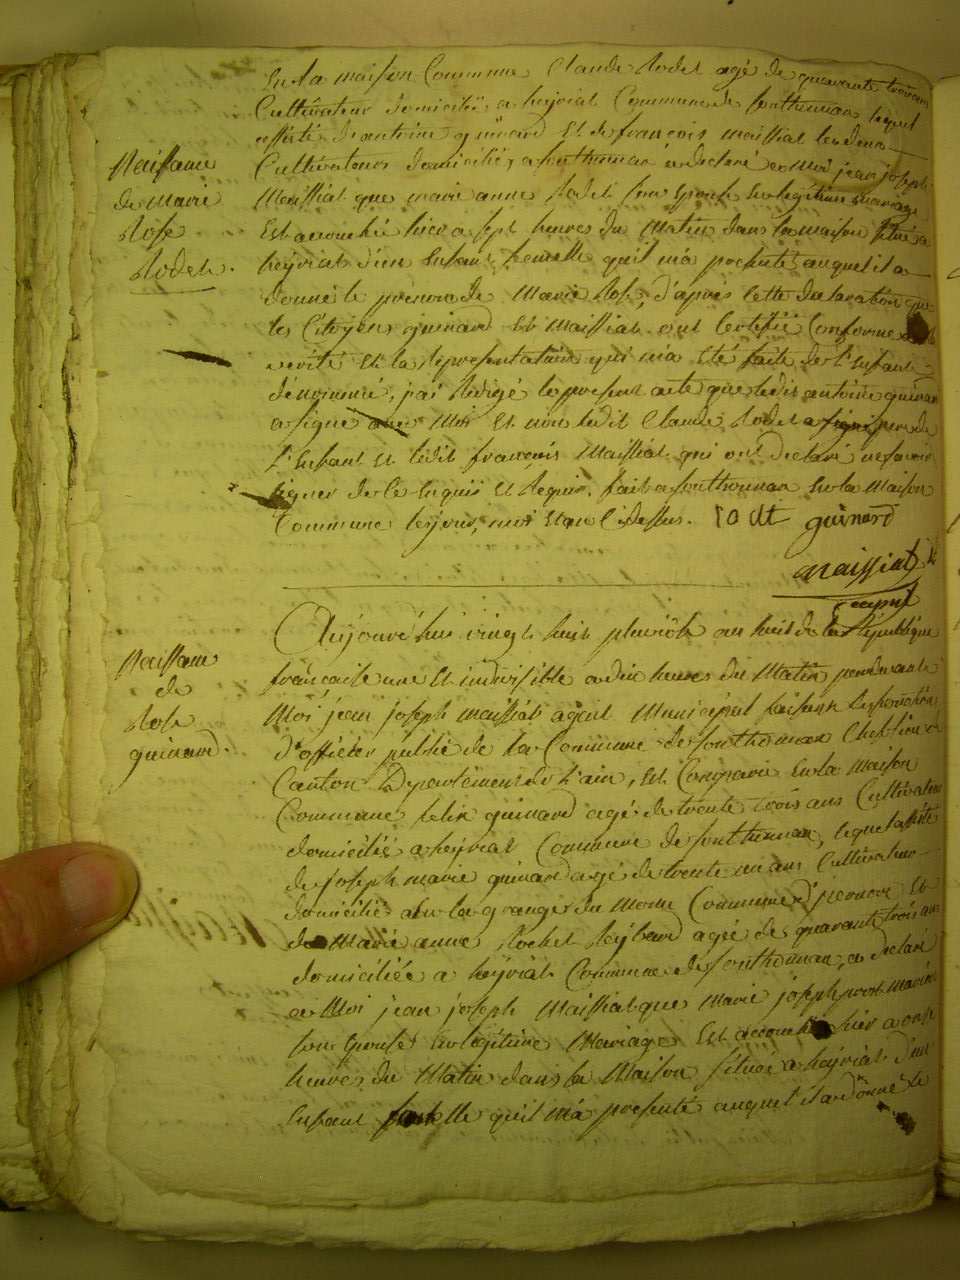 En la maison Commune Claude Rodet agé de quarante trois ans
Cultivateur domicilié a heyriat Commune de Sonthonnax lequel
assisté d'antoine guinard et de françois maissiat les deux
Cultivateurs domiciliés a sonthonnax a declaré a Moi jean joseph
Maissiat que marie anne Rodet son Epouse En legitime mariage
Est accouchée hier a sept heures du Matin dans la maison située a
heyriat d'un Enfant femelle qu'il m'a presenté auquel il a
donné le prenom de Marie Rose, d'après cette declaration que
les Citoyens guinard Et Maissiat ont Certifié Conforme a la
verité Et la Representation qui m'a Eté faite de l'Enfant
dénommé, j'ai Redigé le present acte que ledit antoine guinard
a signé avec Moi Et non ledit Claude Rodet pere de
l'Enfant Et ledit françois Maissiat qui ont declaré ne savoir
signer de Ce Enquis Et Requis. fait a sonthonnax En la Maison
Commune les jour, moi Et an Cidessus. rodt guinard
maissiat
Naissance
de Marie
Rose
Rodet.
Aujourd'hui vingt huit pluviôse an huit de la Republique
francaise une Et indivisible a dix heures du Matin pardevant
Moi jean joseph maissiat agent Municipal faisant les fonctions
d'officier public de la Commune de sonthonnax Cheflieu de
Canton Departement de l'ain, Est Comparu En la Maison
Commune felix guinard agé de trente trois ans Cultivateur
domicilié a heyriat Commune de sonthonnax, lequel assisté
de joseph marie guinard agé de trente un ans Cultivateur
domicilié a la grange du Commune d'izernore Et
de Marie anne Rochet Reybard agée de quarante trois ans
domiciliée a heyriat Commune de sonthonnax, a declaré
a Moi jean joseph Maissiat que Marie josephe
son Epouse En legitime Mariage Est accouchée hier a onze
heures du Matin dans la Maison située a heyriat d'un
Enfant femelle qu'il m'a presenté auquel il a donné le
Naissance
de
Rose
guinard.